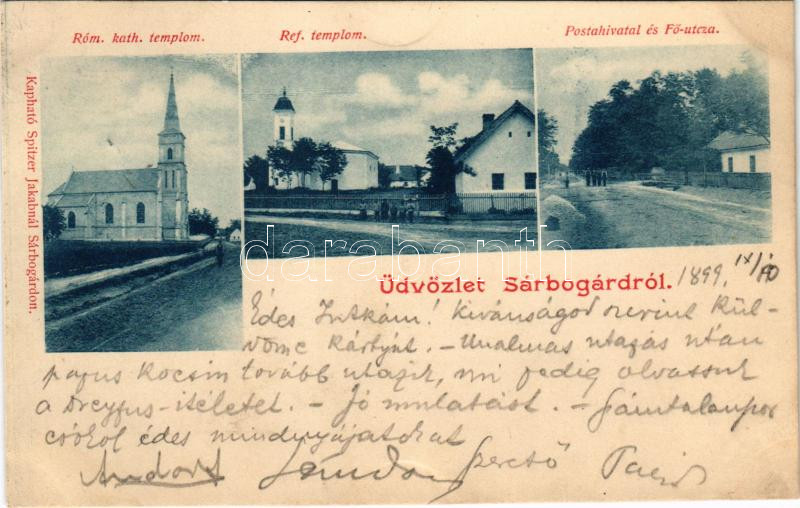 Róm. kath. templom.
Ref. templom.
Postahivatal és Fő-utcza.
Kapható Spitzer Jakabnál Sárbogárdon.
darabanth
Üdvözlet Sárbogárdról.
1899. IX/10
Édes! Kivánságod szerint kül-
kártyát. - Unalmas utazás után
kocsin tovább utazik, mi pedig olvassuk
a Dreyfus-itéletet. - Jó mulatást. -
csókol édes mindnyájatokat
Andort Sándor